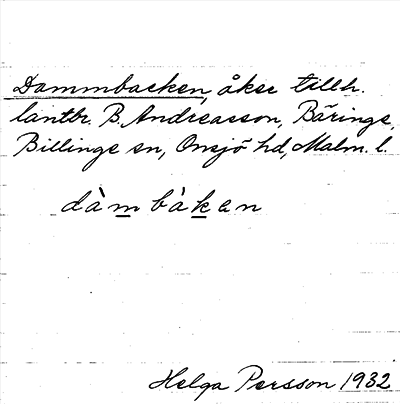 Dammbacken, åker tillh.
lantbr. B. Andreasson, Bäringe,
Billinge sn, Onsjö hd, Malm. l.
dàmbàkan
Helga Persson 1932